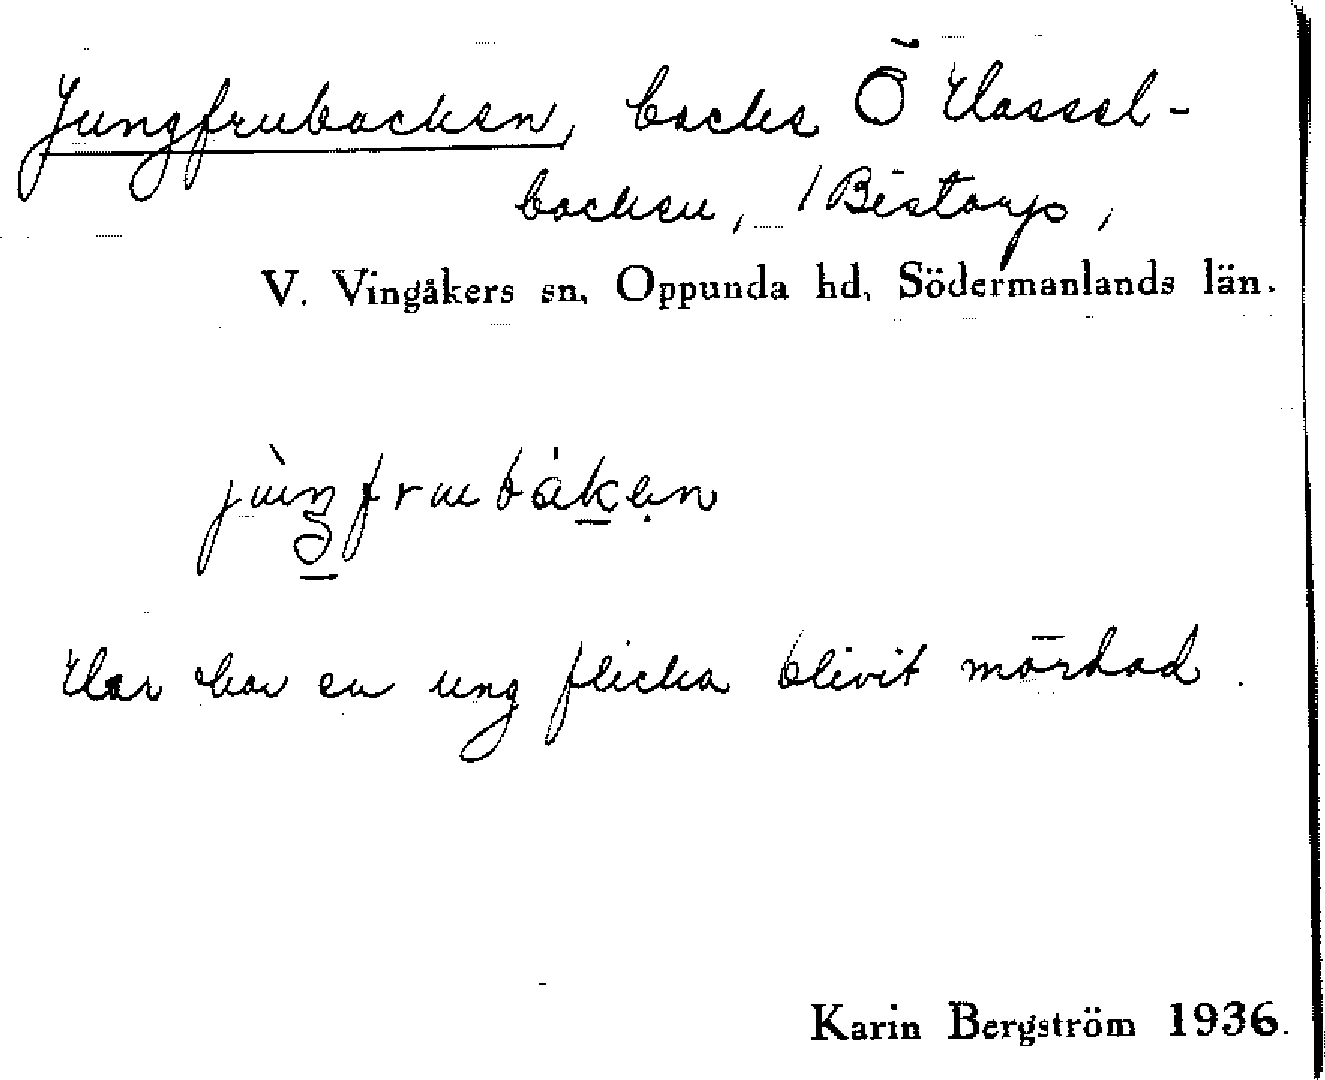 Jungfrubacken, backe Ö Hassel-
backen, /Bistorp,
V. Vingåkers sn, Oppunda hd, Södermanlands län.
Här har en ung flicka blivit mördad.
Karin Bergström 1936.